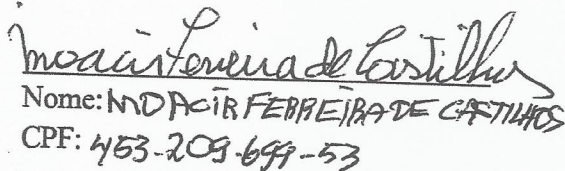 Moacir Ferreira de Castilhos
Nome: MOACIR FERREIRA DE CASTILHOS
CPF: 453-209-699-53